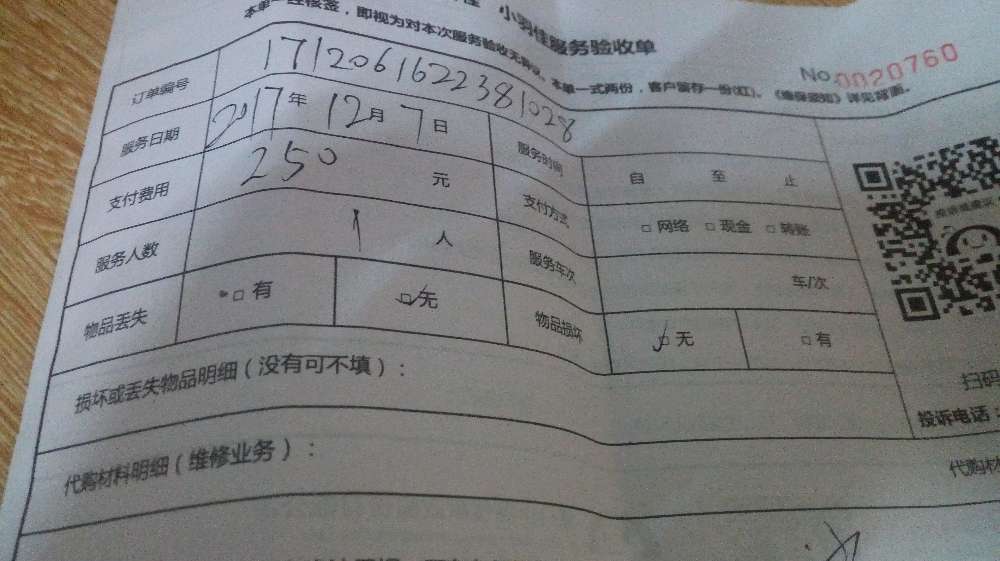 小羽佳服务验收单
本单一经核签,即视为对本次服务验收无异议。本单一式两份,客户留存一份(红)。《维保须知》详见背面。
No.0020760
订单编号 1712061622381028
服务日期 2017年 12月 7日 服务时间 自 至 止
支付费用 250 元 支付方式 □网络 □现金 □转账
服务人数 1 人 服务车次 车/次
物品丢失 □有 □无 物品损坏 □无 □有
损坏或丢失物品明细(没有可不填):
扫码
投诉电话:
代购材料明细(维修业务):
代购材